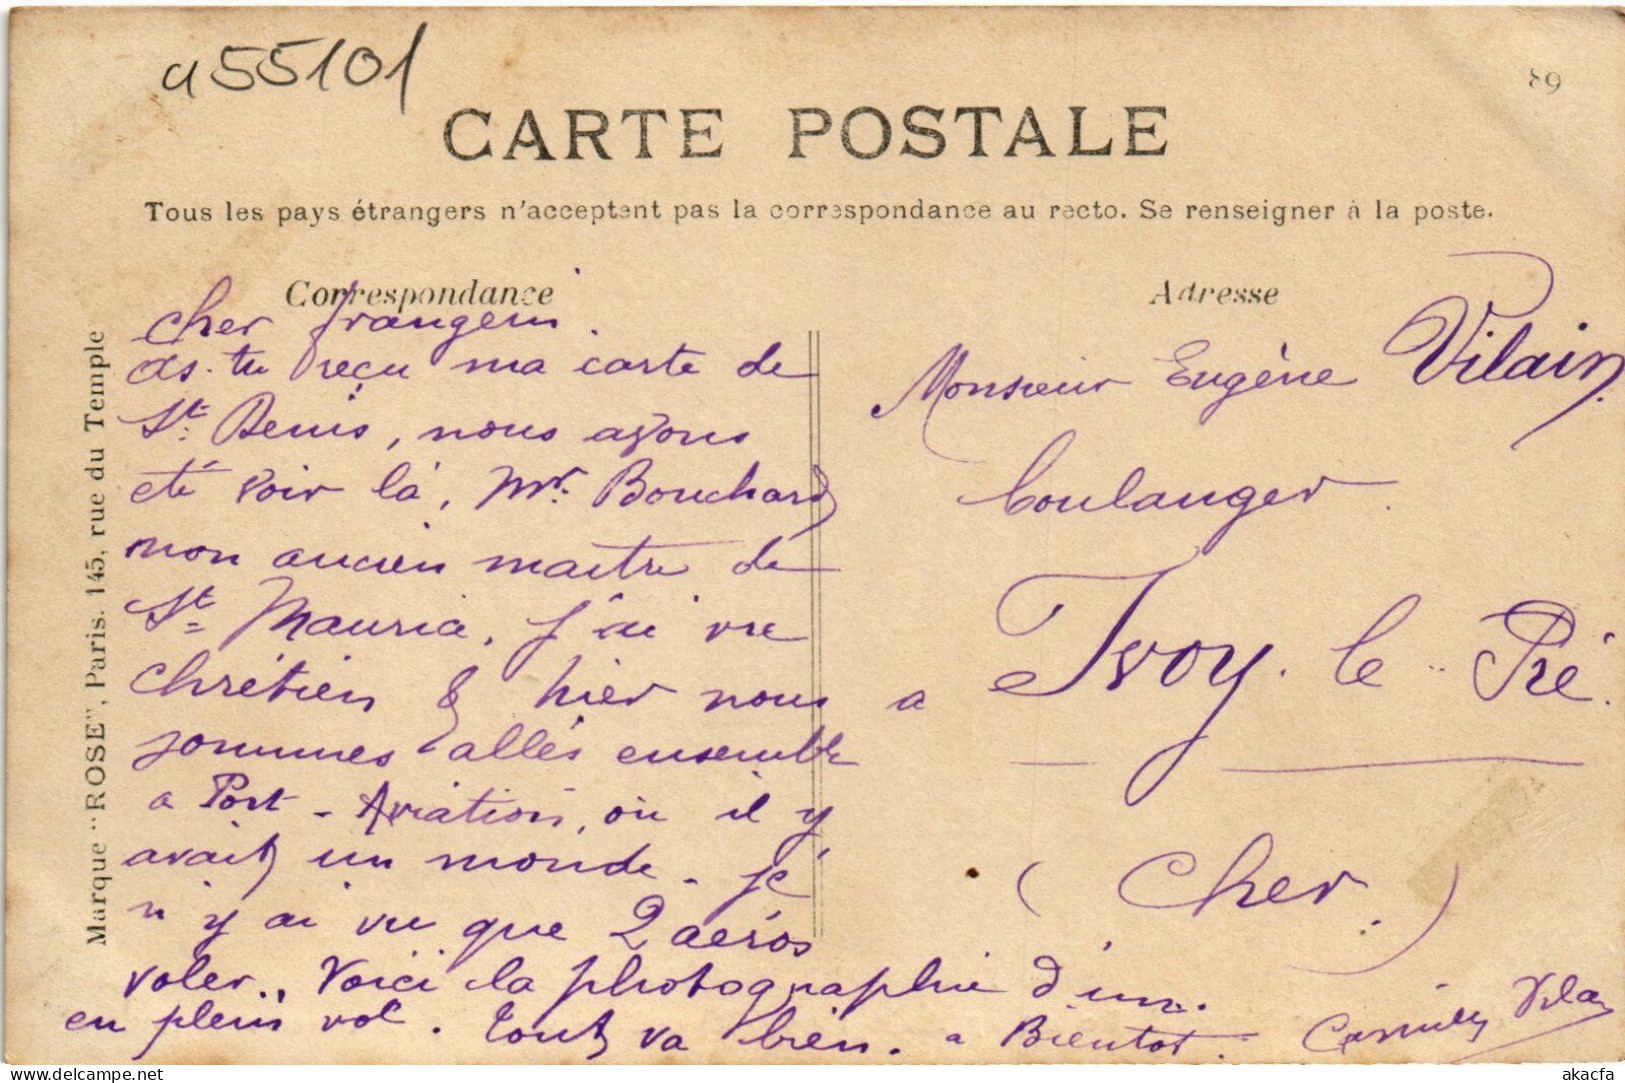 a55101
89
CARTE POSTALE
Tous les pays étrangers n'acceptent pas la correspondance au recto. Se renseigner à la poste.
Correspondance
Adresse
Marque "ROSE", Paris. 145, rue du Temple
Cher frangein.
As-tu reçu ma carte de
St. Denis, nous avons
eté voir là, Mr. Bouchard
mon ancien maitre de
St Mauria, J'ai vu
Chrétien & hier nous
sommes allés ensemble
a Port-Aviation, où il y
avait un monde. je
n'y ai vu que 2 aéros
voler., Voici la photographie d'un.
en plein vol. tout va bien. a Bientot.
Vilain
Monsieur Eugène Vilain.
boulanger.
a Ivoy-le-Pré.
(Cher.)
akacfa